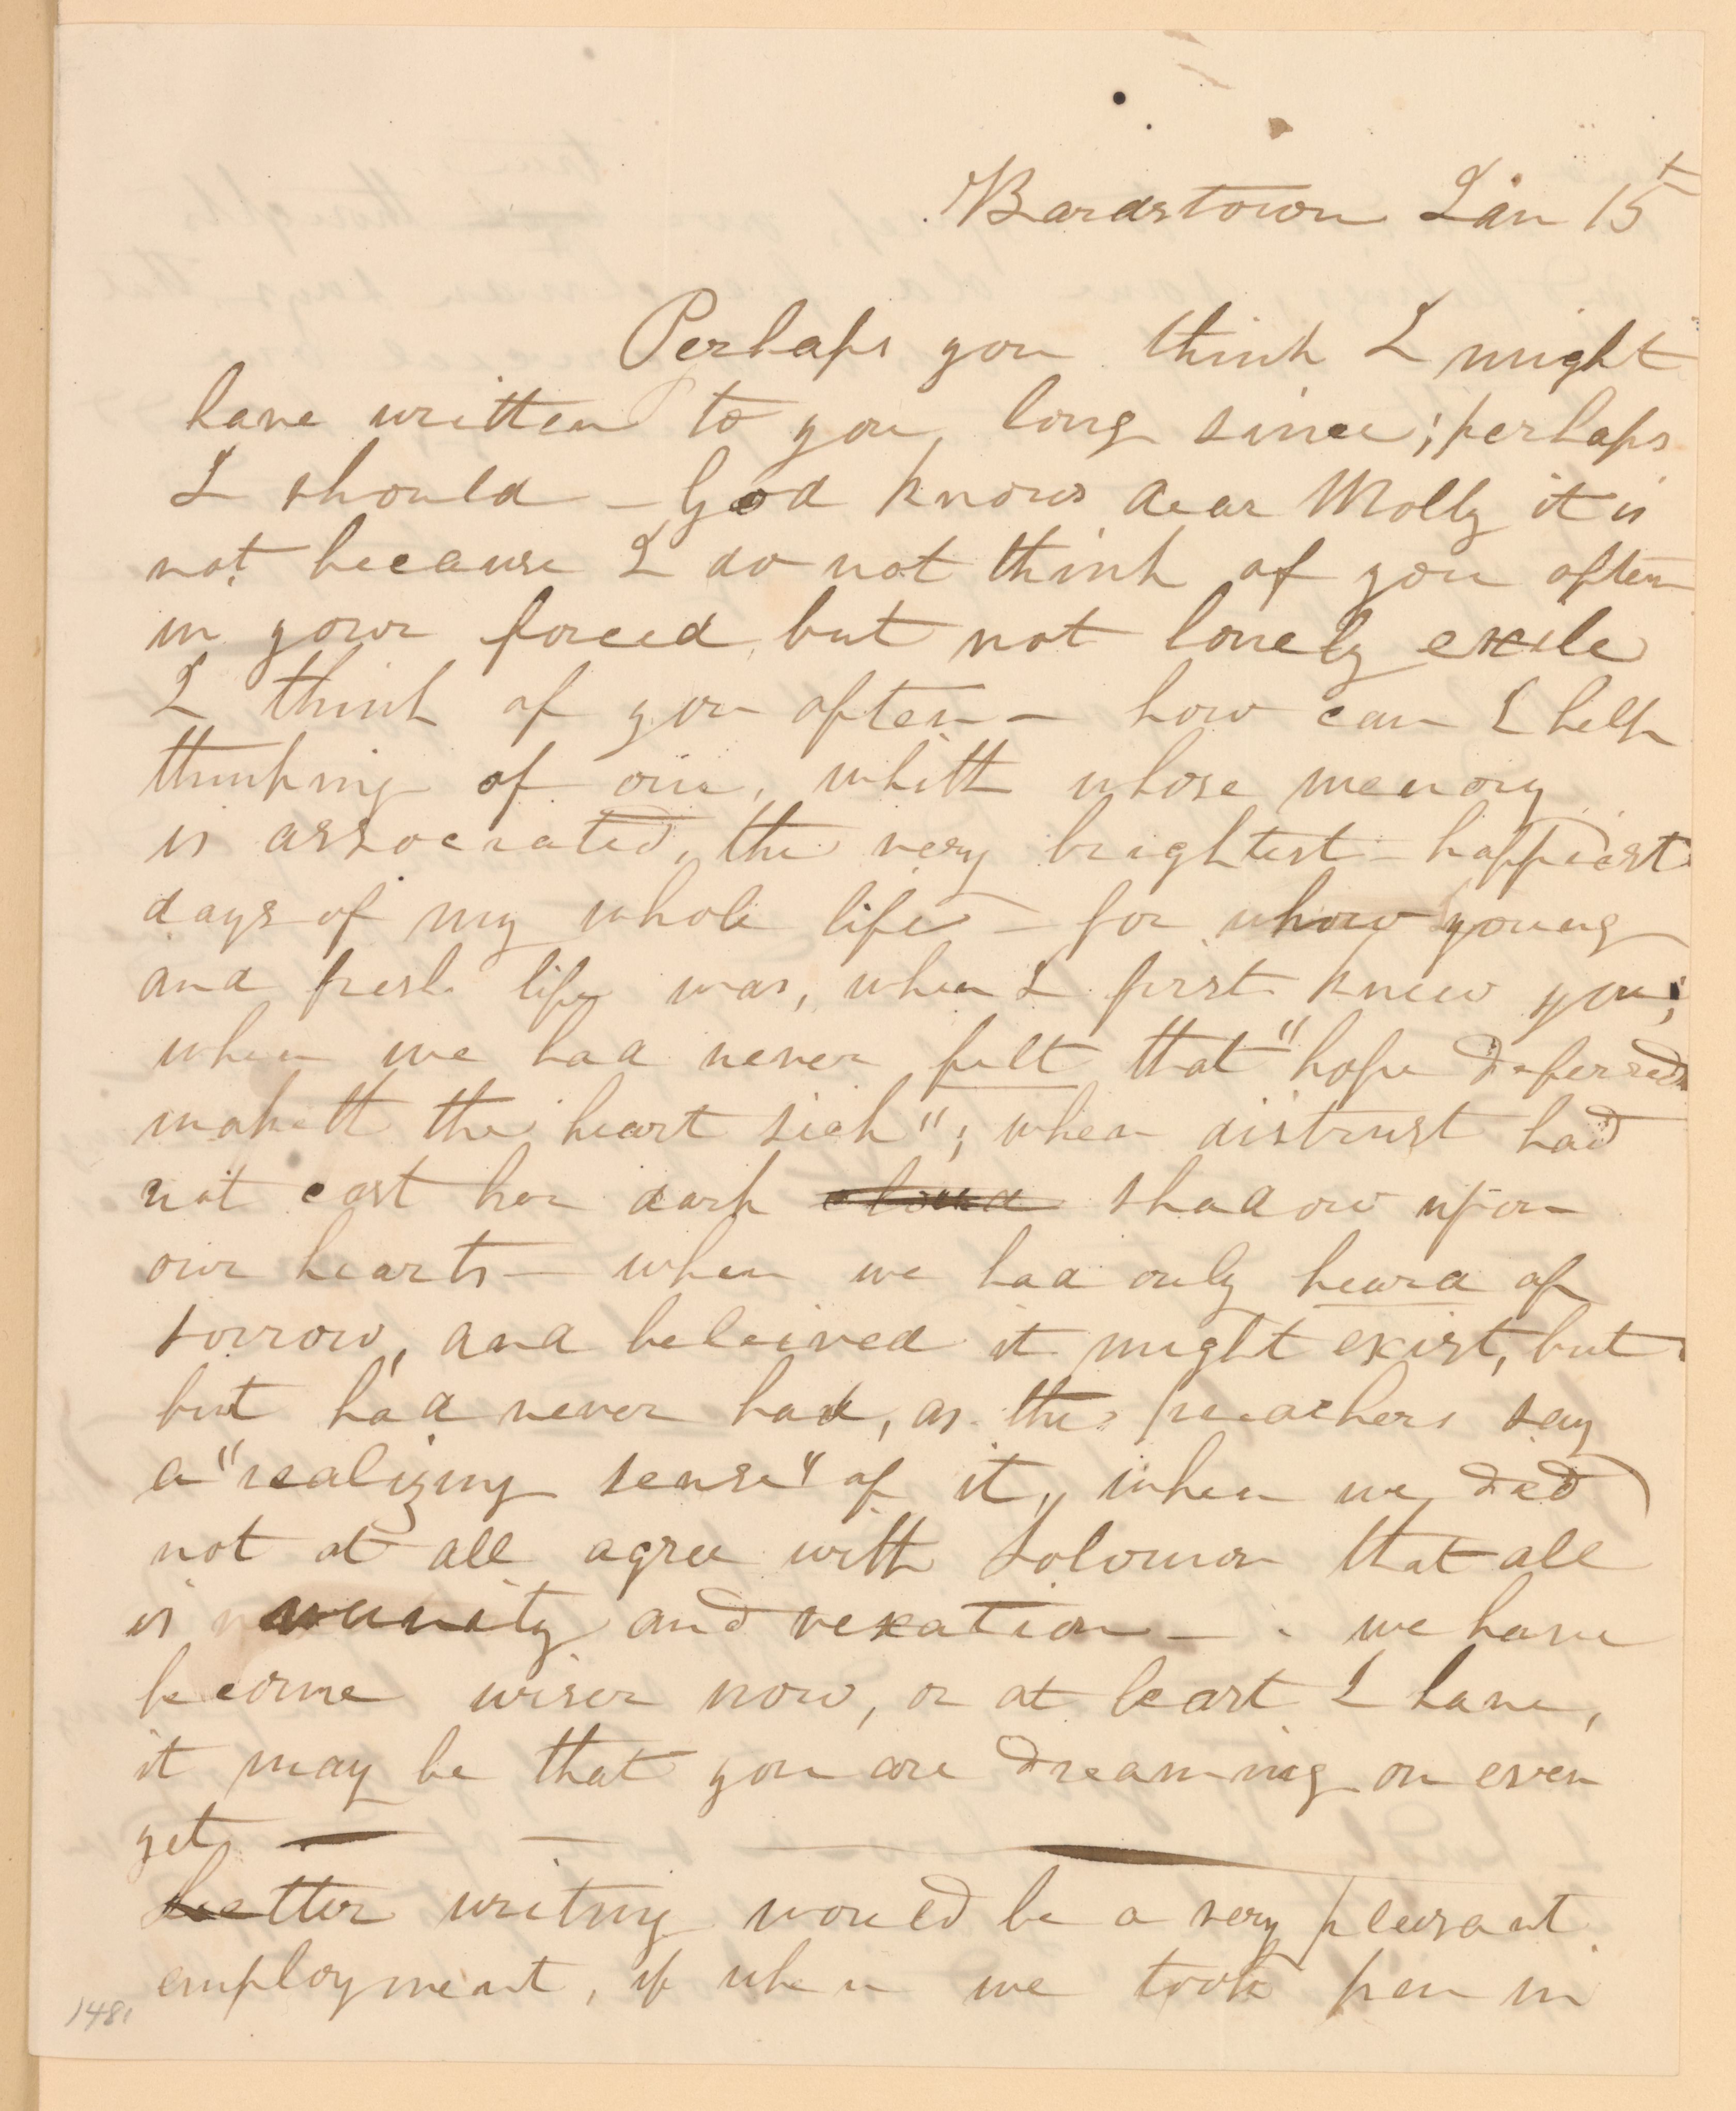 Bardstown Jan 15t
Perhaps you think I might
have written to you, long since; perhaps
I should – God knows dear Molly it is
not because I do not think of you often
in your forced, but not lonely exile
I think of you often – how can I help
thinking of one, whith whose memory
is associated, the very brightest – happiest
days of my whole life – for how young
and fresh life was, when I first knew you;
when we had never felt that "hope deferred
maketh the heart sick"; when distrust had
not cast her dark cloud shadow upon
our hearts – when we had only heard of
sorrow, and beleived it might exist, but
but had never had, as the preachers say
a "realizing sense" of it, when we did
not at all agree with Solomon that all
is vanity and vexation – we have
become wiser now, or at least I have,
it may be that you are dreaming on even
yet —
Letter writing would be a very pleasant
employment, if when we took pen in
1481